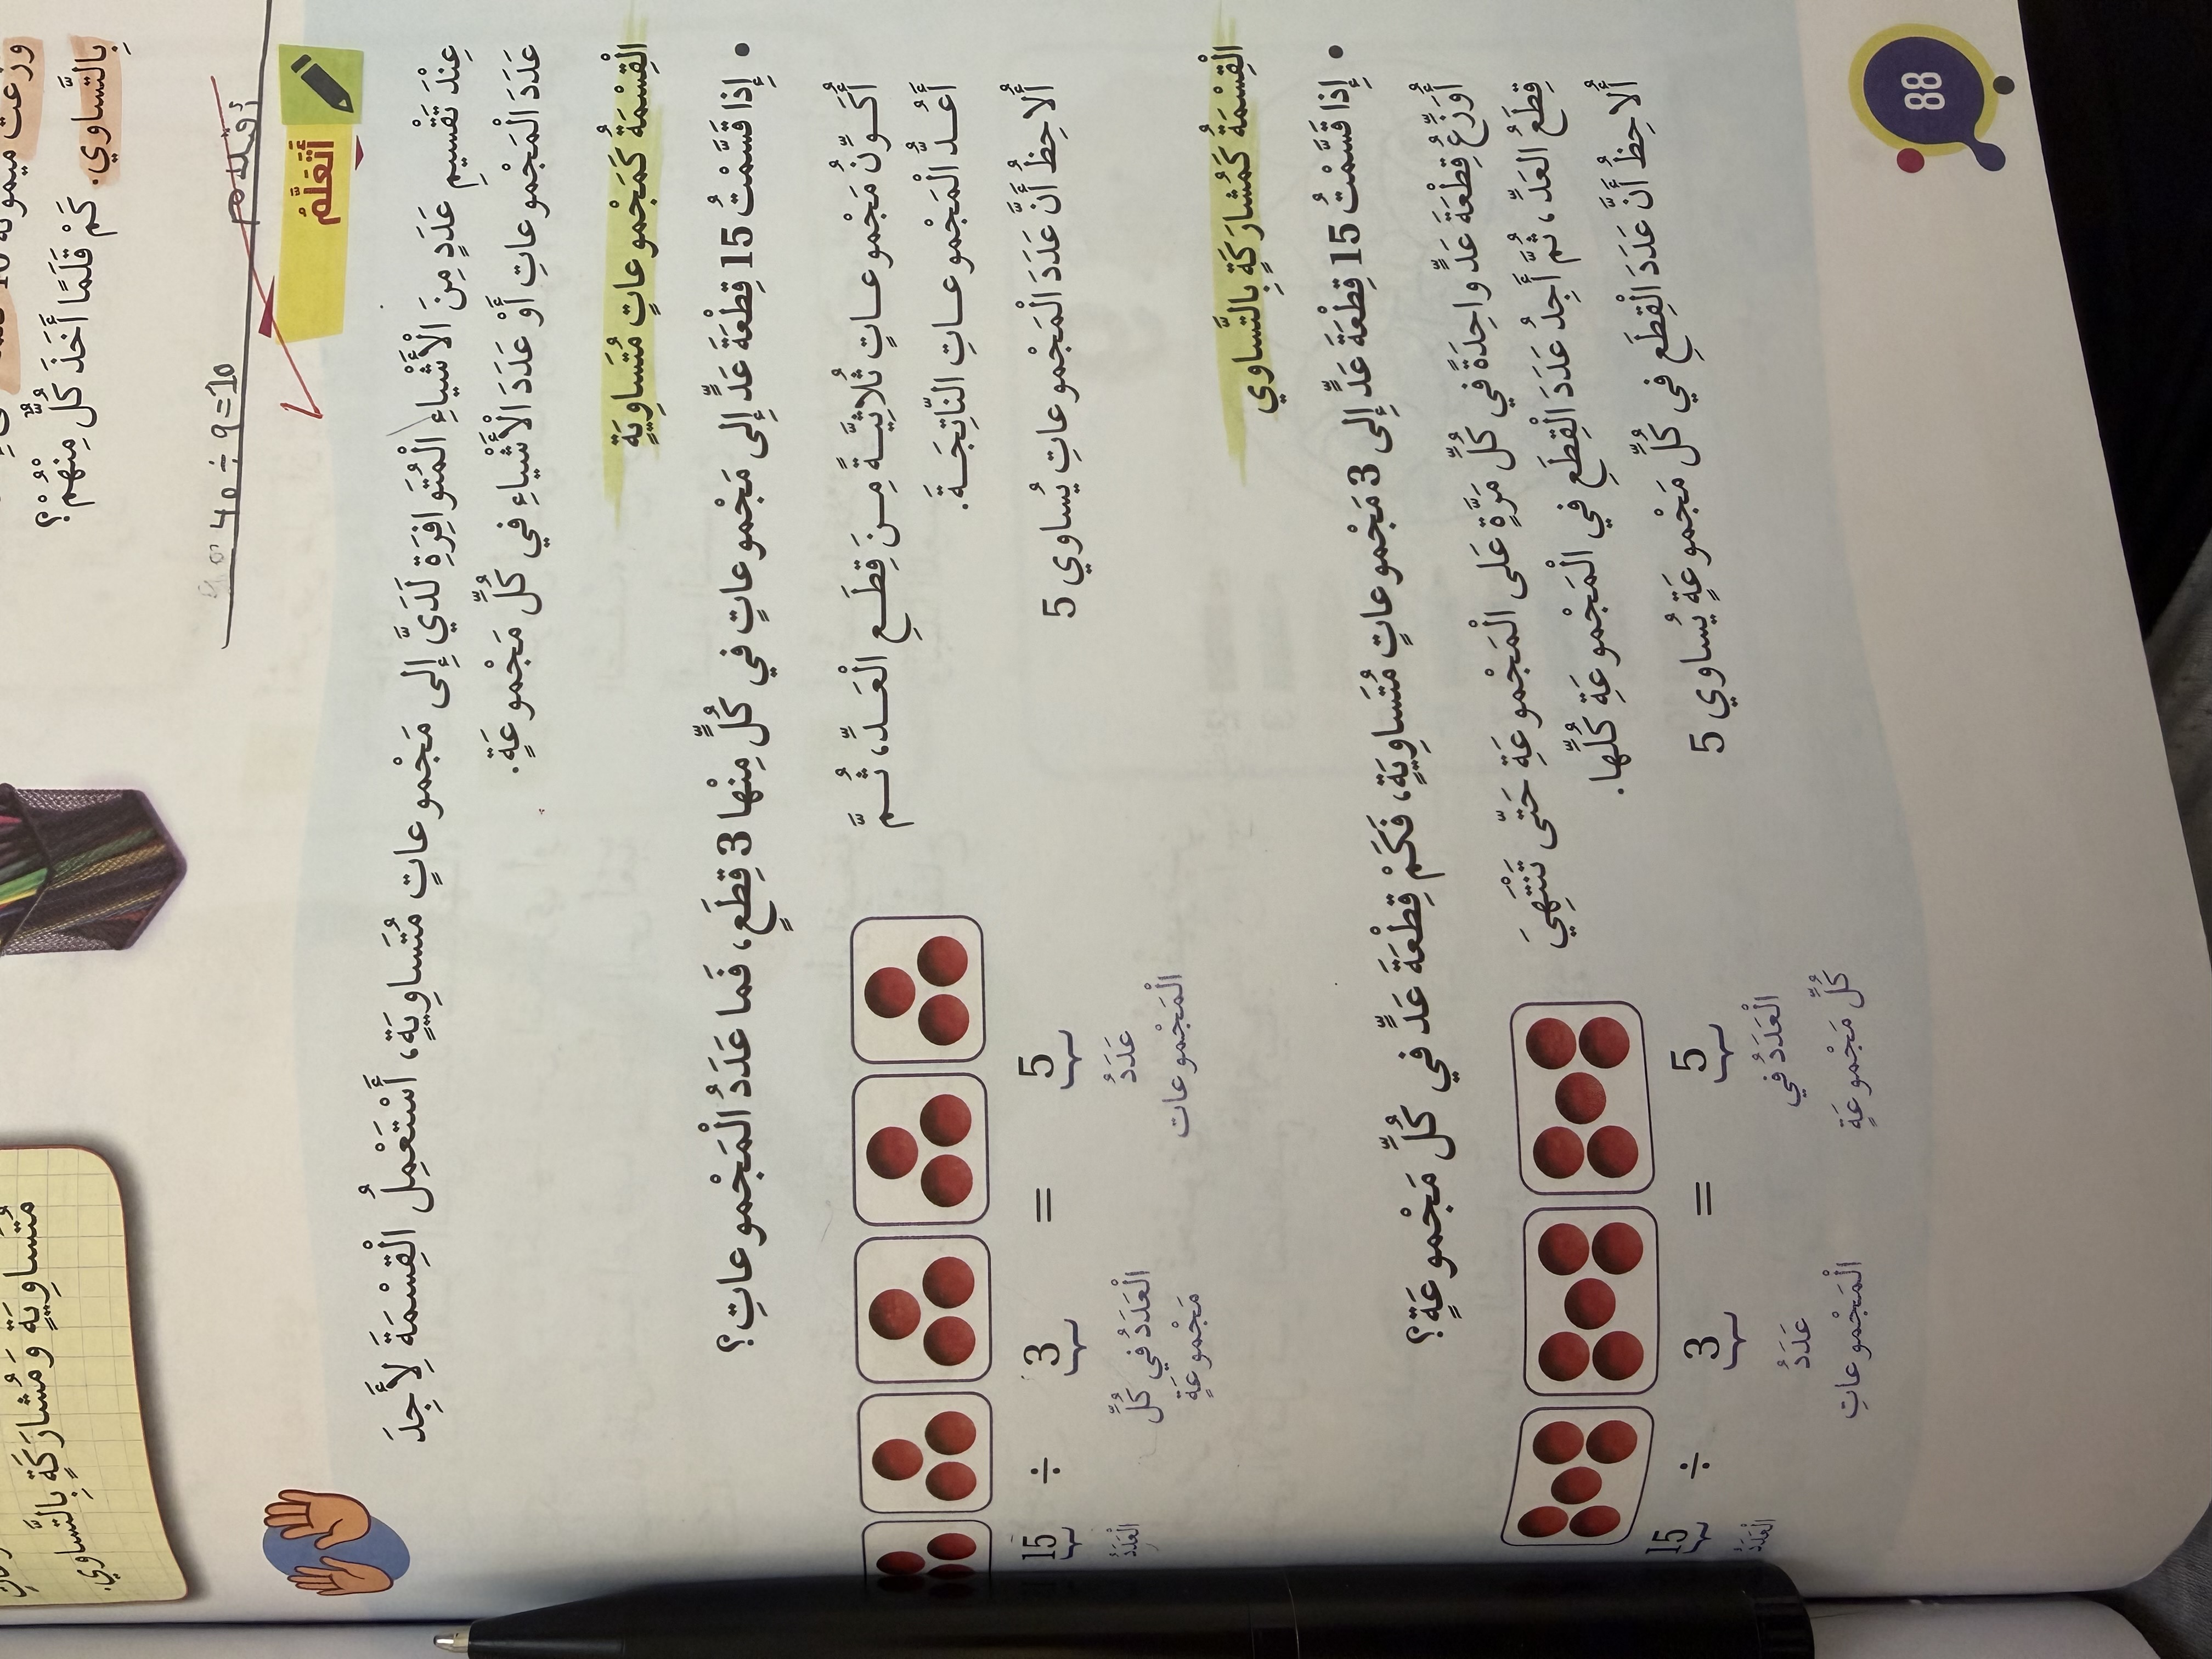 بِالتَّساوي. كَمْ قَلَمًا أَخَذَ كُلٌّ مِنْهُمْ؟
مُتَساوِيَةٍ وَمُشارَكَةٍ بِالتَّساوي.
أَتَعَلَّمُ
عِنْدَ تَقْسيمِ عَدَدٍ مِنَ الْأَشْياءِ الْمُتَوافِرَةِ لَدَيَّ إِلى مَجْموعاتٍ مُتَساوِيَةٍ، أَسْتَعْمِلُ الْقِسْمَةَ لِأَجِدَ
عَدَدَ الْمَجْموعاتِ أَوْ عَدَدَ الْأَشْياءِ في كُلِّ مَجْموعَةٍ.
الْقِسْمَةُ كَمَجْموعاتٍ مُتَساوِيَةٍ
• إِذا قَسَّمْتُ 15 قِطْعَةَ عَدٍّ إِلى مَجْموعاتٍ في كُلٍّ مِنْها 3 قِطَعٍ، فَما عَدَدُ الْمَجْموعاتِ؟
أُكَوِّنُ مَجْموعاتٍ ثُلاثِيَّةً مِنَ قِطَعِ الْعَدِّ، ثُمَّ
أَعُدُّ الْمَجْموعاتِ النّاتِجَةَ.
أُلاحِظُ أَنَّ عَدَدَ الْمَجْموعاتِ يُساوي 5
15 ÷ 3 = 5
الْعَدَدُ
الْعَدَدُ في كُلِّ
مَجْموعَةٍ
عَدَدُ
الْمَجْموعات
الْقِسْمَةُ كَمُشارَكَةٍ بِالتَّساوي
• إِذا قَسَّمْتُ 15 قِطْعَةَ عَدٍّ إِلى 3 مَجْموعاتٍ مُتَساوِيَةٍ، فَكَمْ قِطْعَةَ عَدٍّ في كُلِّ مَجْموعَةٍ؟
أُوَزِّعُ قِطْعَةَ عَدٍّ واحِدَةً في كُلِّ مَرَّةٍ عَلى الْمَجْموعَةِ حَتّى تَنْتَهِيَ
قِطَعُ العَدِّ، ثُمَّ أَجِدُ عَدَدَ الْقِطَعِ في الْمَجْموعَةِ كُلِّها.
أُلاحِظُ أَنَّ عَدَدَ الْقِطَعِ في كُلِّ مَجْموعَةٍ يُساوي 5
15 ÷ 3 = 5
الْعَدَدُ
عَدَدُ
الْمَجْموعاتِ
الْعَدَدُ في
كُلِّ مَجْموعَةٍ
88